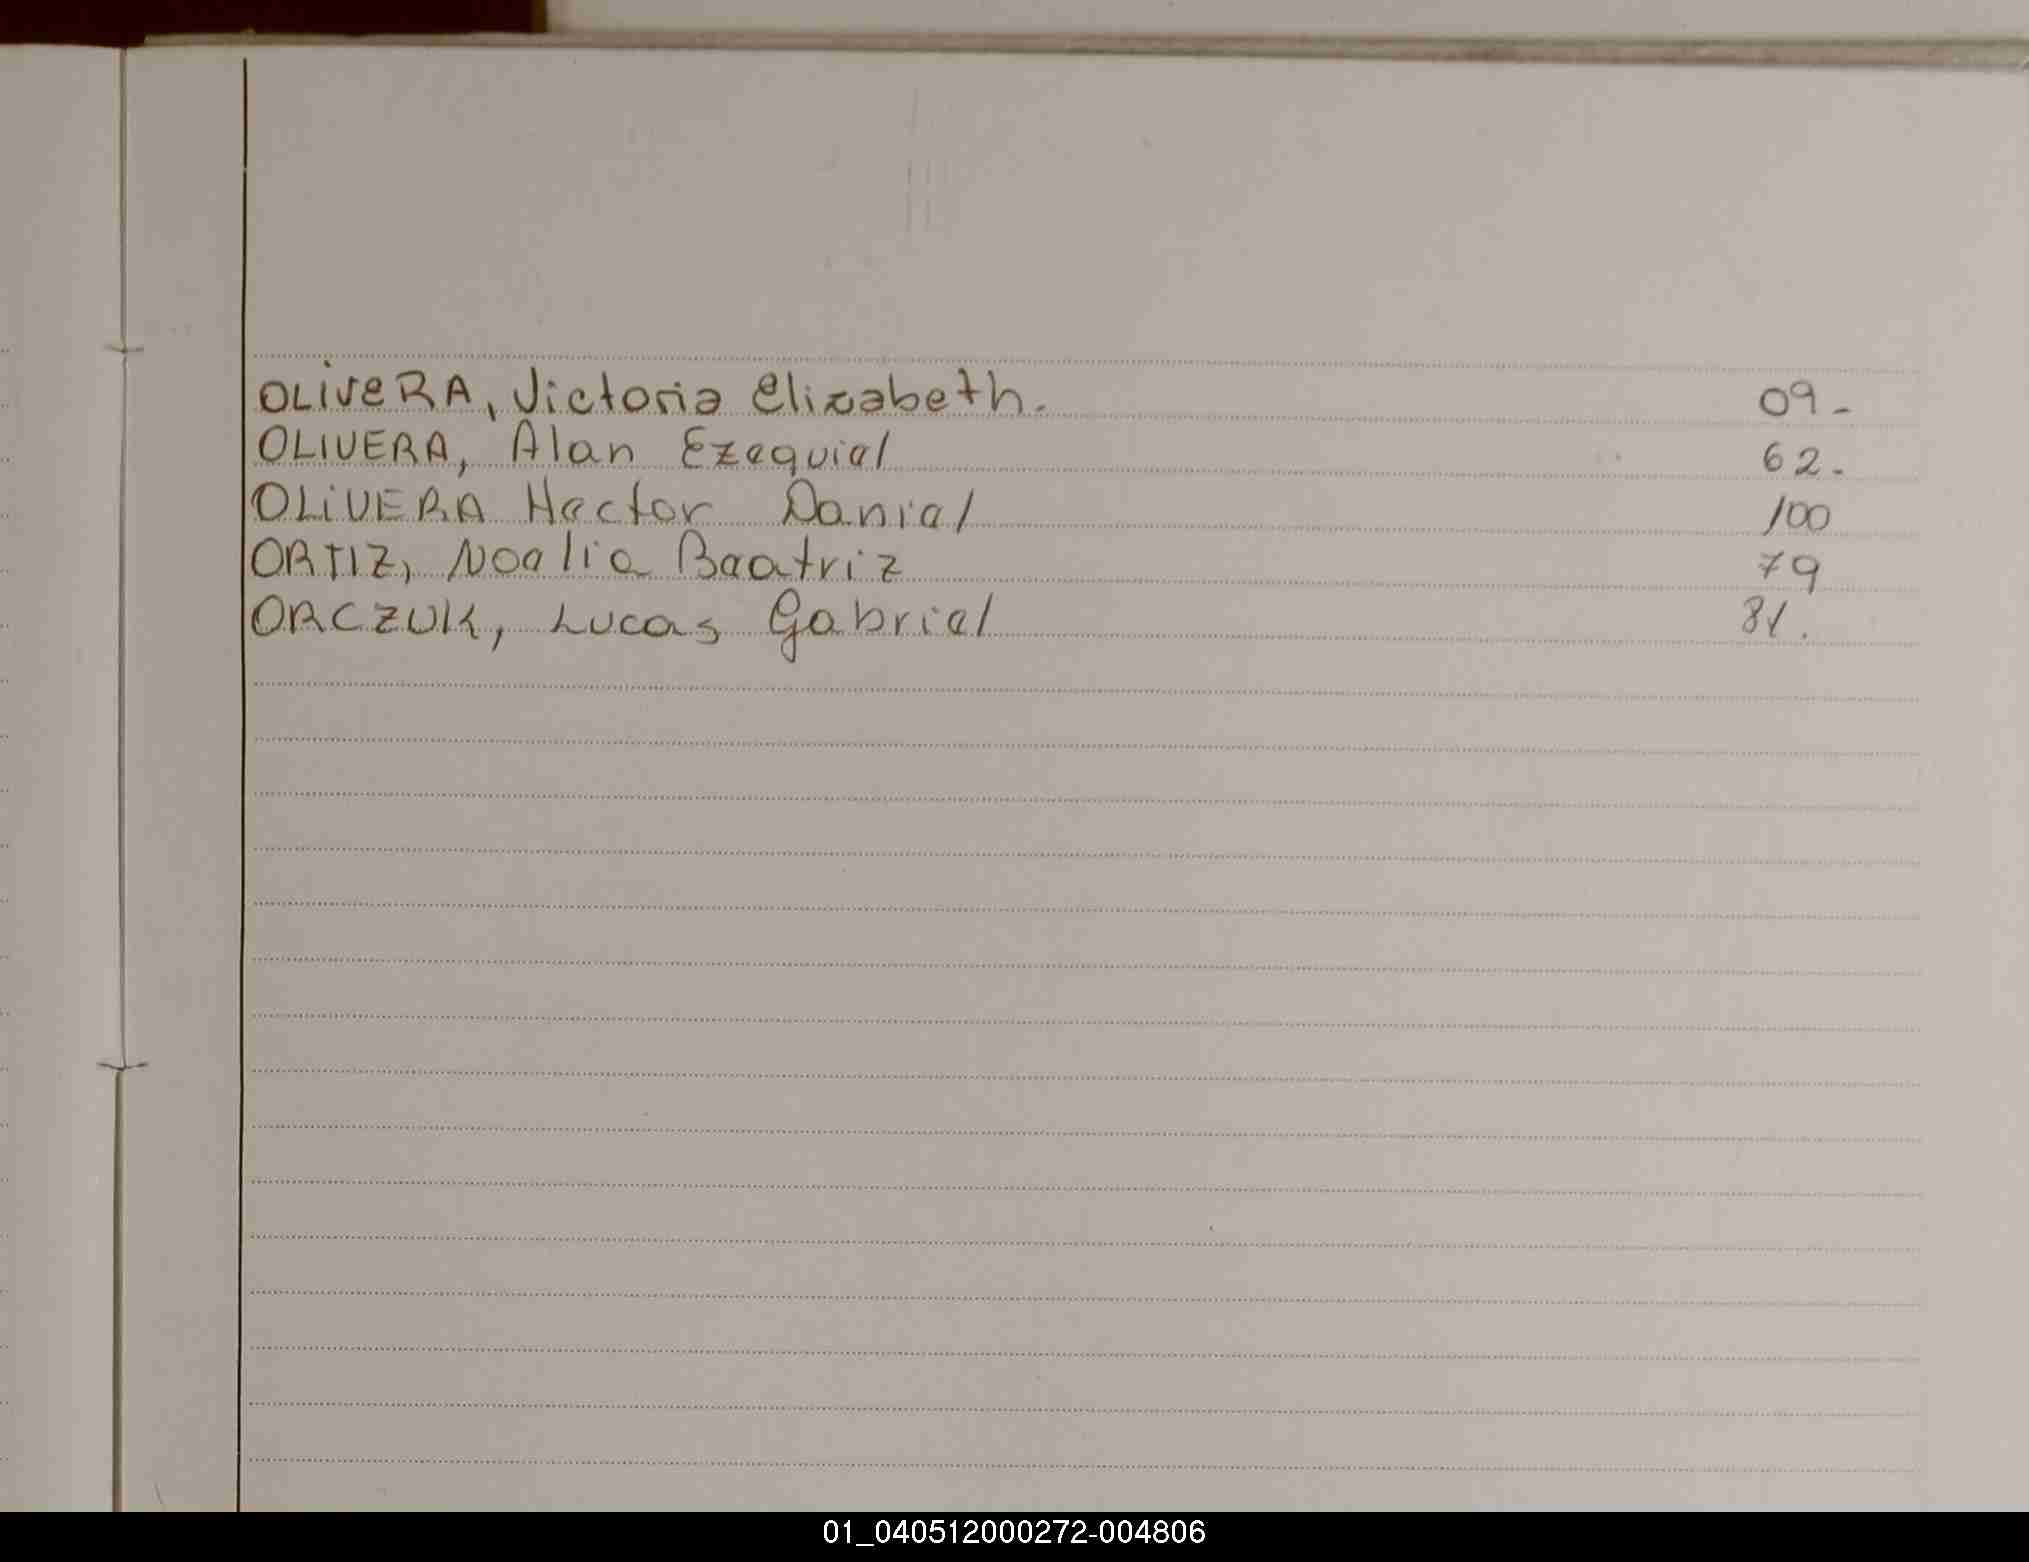 OLIVERA, Victoria Elizabeth. 09-
OLIVERA, Alan Ezequiel 62.
OLIVERA Hector Daniel 100
ORTIZ, Noelia Beatriz 79
ORCZUK, Lucas Gabriel 81.
01_040512000272-004806